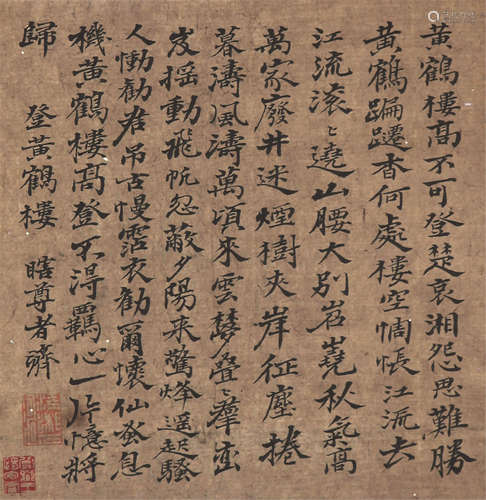 黃鶴樓高不可登楚哀湘怨思難勝
黃鶴蹁躚杳何處樓空惆悵江流去
江流滾〻遶山腰大別岧嶤秋氣高
萬家廢井迷煙樹夾岸征塵捲
暮濤風濤萬頃來雲夢疊
岌搖動飛帆忽蔽夕陽來驚烽遥起騷
人慟勸君吊古慢霑衣勸爾懷仙蚤息
機黃鶴樓高登不得羈心一片憶將
歸 登黃鶴樓 瞎尊者濟